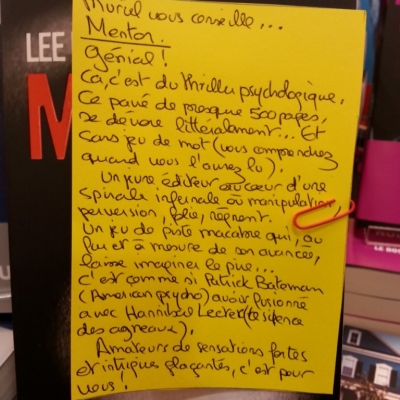 Muriel vous conseille...
Mentor.
Génial!
Ça, c'est du thriller psychologique.
Ce pavé de presque 500 pages,
se dévore littéralement... Et
sans jeu de mot (vous comprendrez
quand vous l'aurez lu).
Un jeune éditeur au cœur d'une
spirale infernale où manipulation,
perversion, folie, règnent.
Un jeu de piste macabre qui, au
fur et à mesure de son avancée,
laisse imaginer le pire...
C'est comme si Patrick Bateman
(American psycho) avait fusionné
avec Hannibal Lecter (le silence
des agneaux).
Amateurs de sensations fortes
et intrigues glaçantes, c'est pour
vous!
LEE
M